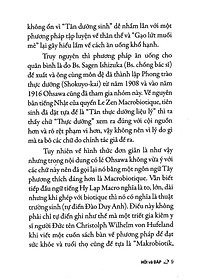 không ổn vì "Tân dưỡng sinh" dễ nhầm lẫn với một
phương pháp tập luyện về thân thể và "Gạo lứt muối
mè" lại gây hiểu lầm về cách ăn uống khổ hạnh.
Truy nguyên thì phương pháp ăn uống cho
quân bình là do Bs. Sagen Ishizuka (Bs. chống bác sĩ)
đề xuất và ông cùng môn đệ đã thành lập Phong trào
thực dưỡng (Shokuyo-kai) từ năm 1908 và vào năm
1916 Ohsawa cũng đã tham gia nhóm này. Về nguyên
bản tiếng Nhật của quyển Le Zen Macrobiotique, tiên
sinh đã đặt tựa đề là "Tân thực dưỡng liệu lý" thì ta
thấy chữ "Thực dưỡng" xem ra đáng với cội nguồn
hơn và có phạm vi rộng hơn, vậy không nên vì lý do gì
mà ta bỏ các chữ do chính tác giả đề ra.
Tuy nhiên về hình thức đơn giản là như vậy
nhưng trong nội dung có lẽ Ohsawa không vừa ý với
cách đã đặt tên nên người lại nó bằng một ngôn ngữ Tây
phương thích đáng hơn là Macrobiotique. Văn biết
tiếp đầu ngữ tiếng Hy Lạp Macro nghĩa là to, lớn, lâu
đời, nhưng khi ghép với biotique thì nó có nghĩa là thuật
trường sinh (tự điển Đào Duy Anh). Điều này không
phải chỉ có tiên sinh nghĩ như thế mà một triết gia kiêm y
sĩ người Đức tên Christoph Wilhelm von Hufeland
cũng khi viết một cuốn sách bàn về phương pháp để đạt
sức khỏe và tuổi thọ cũng đề tựa là "Makrobiotik,
HỎI và ĐÁP 9